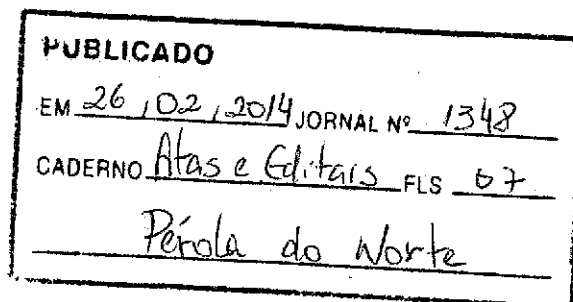 PUBLICADO
EM 26 / 02 / 2014 JORNAL Nº 1348
CADERNO Atas e Editais FLS 07
Pérola do Norte